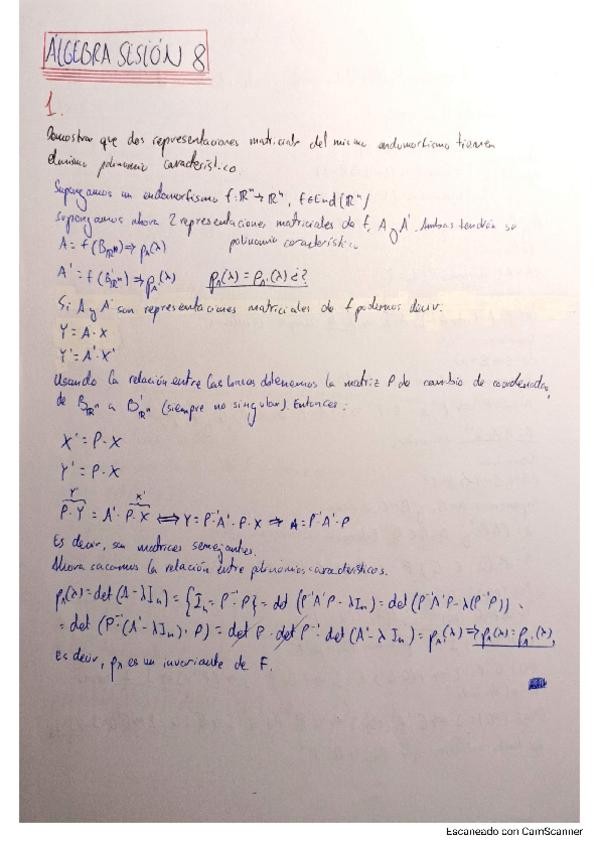 ÁLGEBRA SESIÓN 8
1.
Demostrar que dos representaciones matriciales del mismo endomorfismo tienen
el mismo polinomio característico.
Supongamos un endomorfismo f: ℝⁿ → ℝⁿ, f ∈ End(ℝⁿ)
Supongamos ahora 2 representaciones matriciales de f, A y A'. Ambas tendrán su
A = f(B_ℝⁿ) ⇒ p_A(λ) polinomio característico
A' = f(B'_ℝⁿ) ⇒ p_A'(λ) p_A(λ) = p_A'(λ) ¿?
Si A y A' son representaciones matriciales de f podemos decir:
Y = A · X
Y' = A' · X'
Usando la relación entre las bases obtenemos la matriz P de cambio de coordenadas,
de B_ℝⁿ a B'_ℝⁿ (siempre no singular). Entonces:
X' = P · X
Y' = P · X
Y' X'
P · Y = A' · P · X ⟺ Y = P⁻¹ A' · P · X ⇒ A = P⁻¹ A' · P
Es decir, son matrices semejantes.
Ahora sacamos la relación entre polinomios característicos.
p_A(λ) = det (A - λIₙ) = {Iₙ = P⁻¹ · P} = det (P⁻¹A'P - λIₙ) = det (P⁻¹A'P - λ(P⁻¹P)) =
= det (P⁻¹ (A' - λIₙ) · P) = det P · det P⁻¹ · det (A' - λIₙ) = p_A'(λ) ⇒ p_A(λ) = p_A'(λ)
Es decir, p_A es un invariante de F.
Escaneado con CamScanner